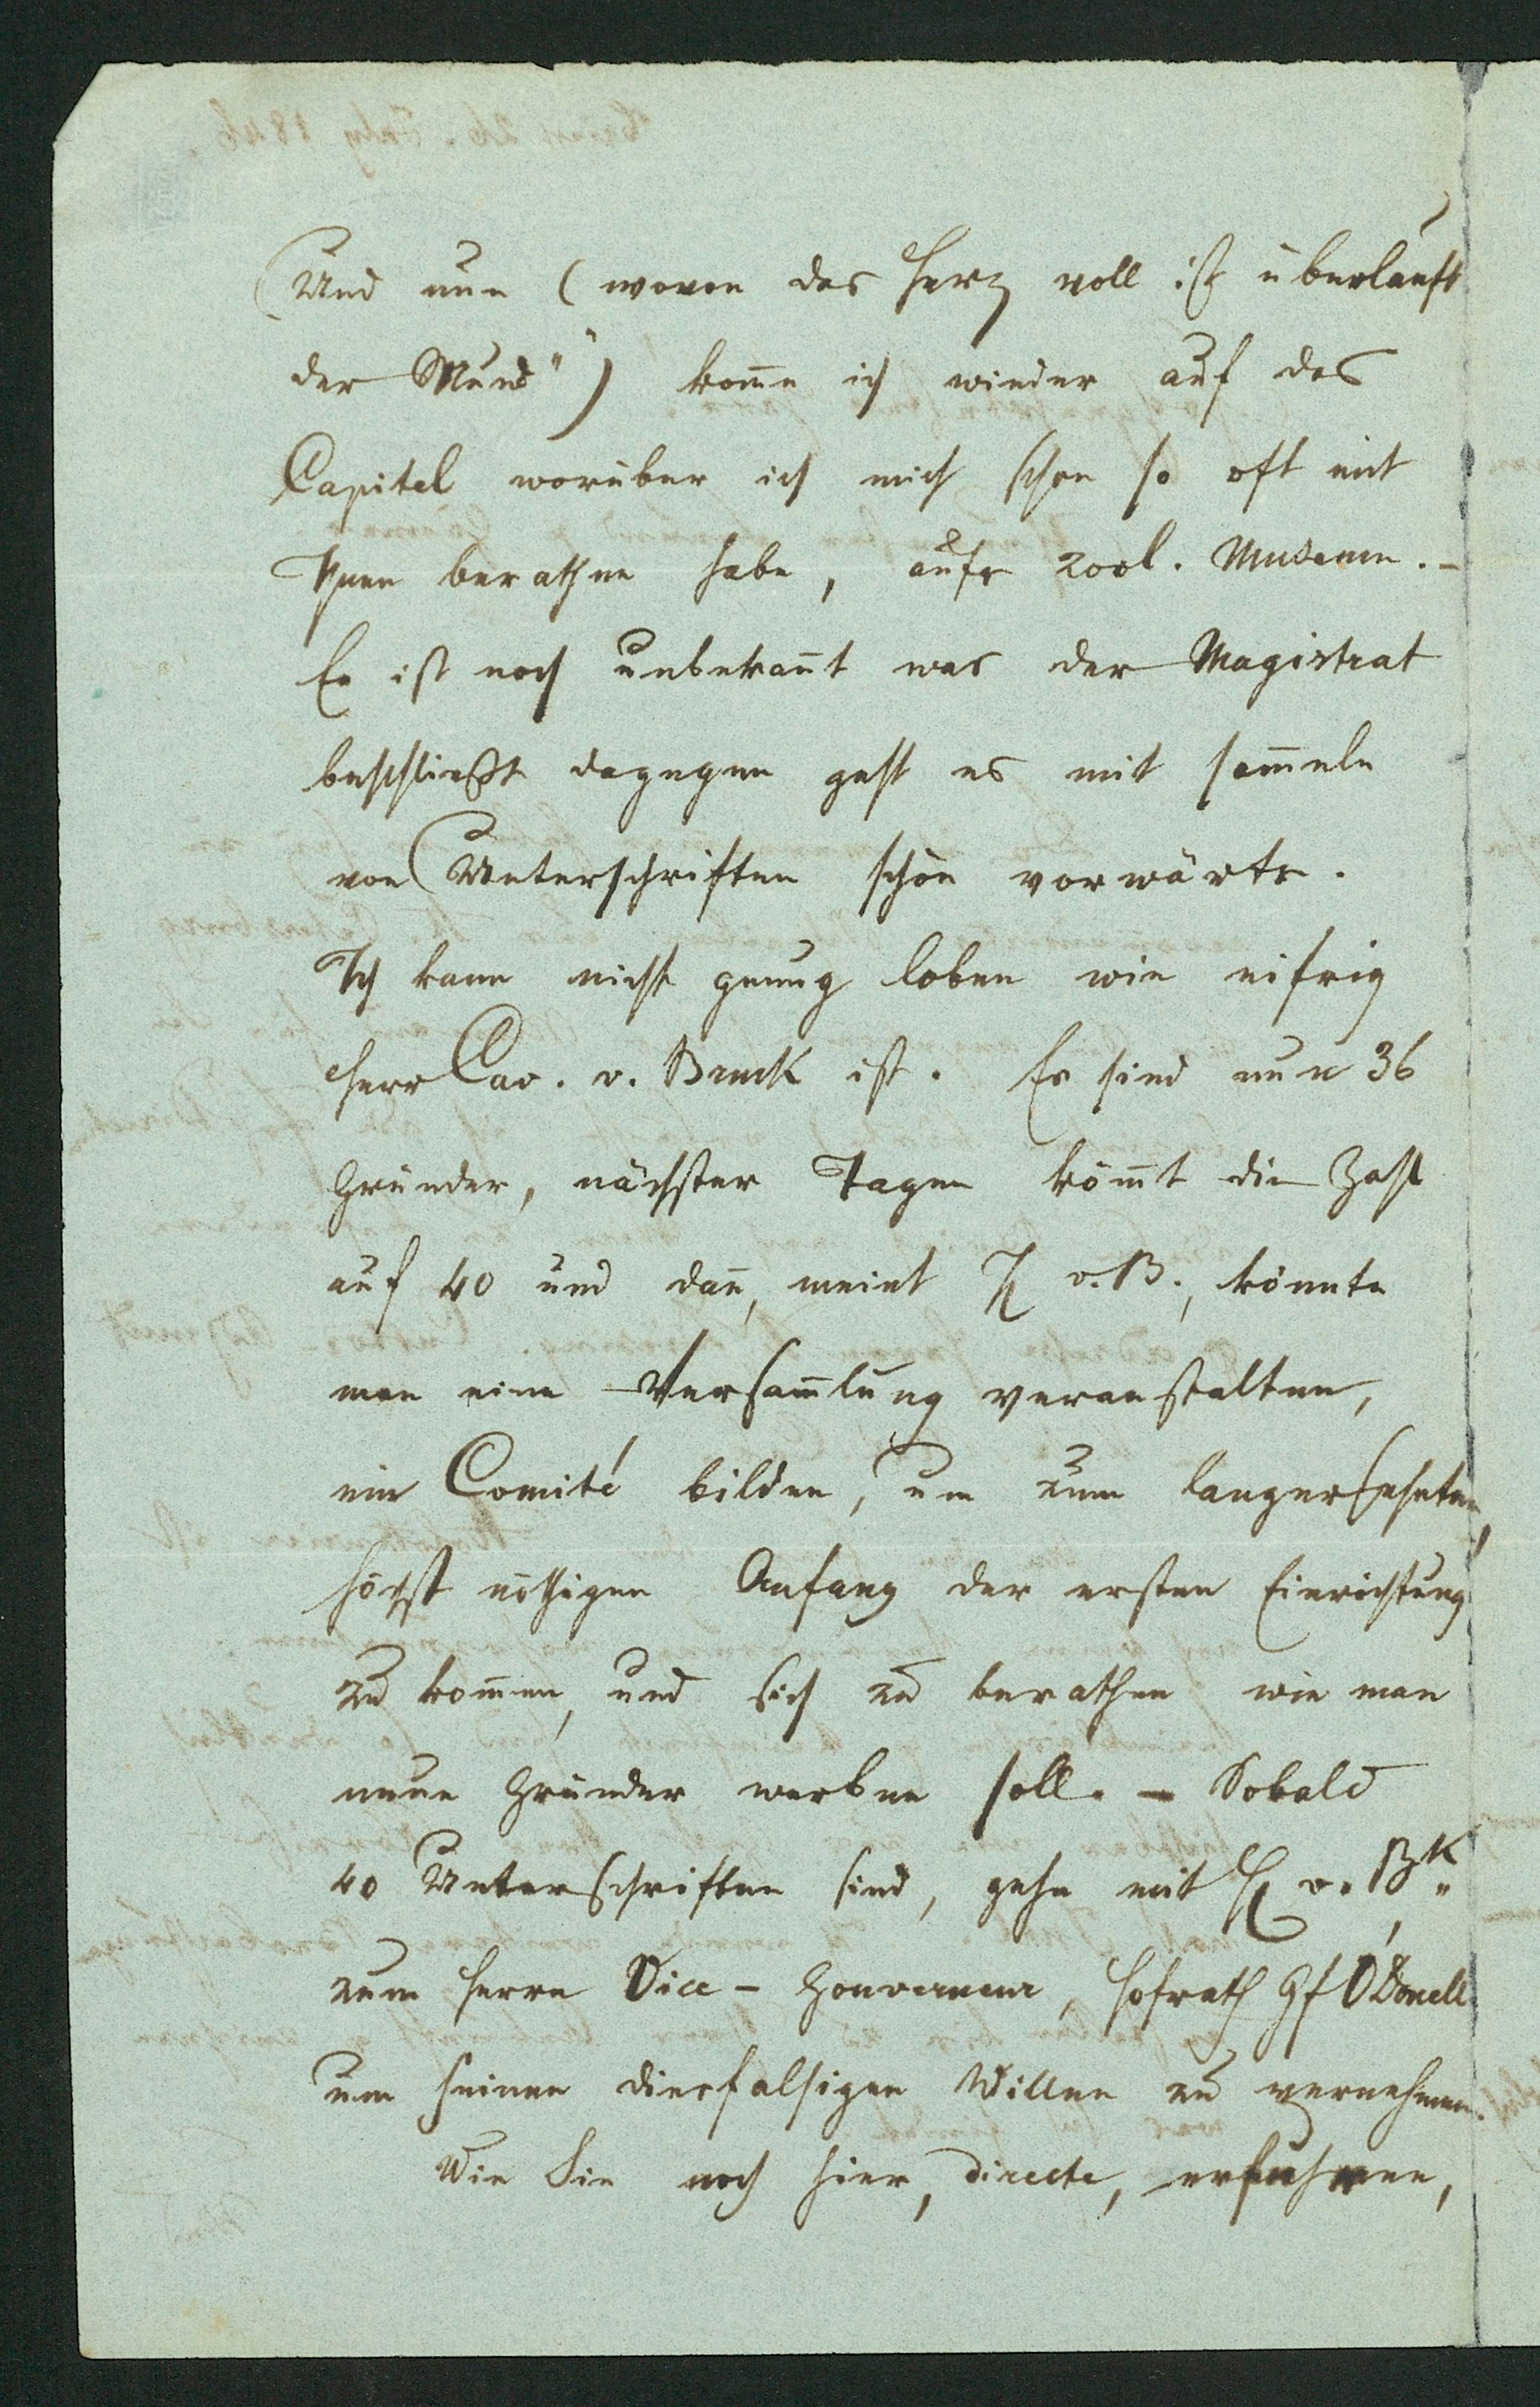 Und nun (wovon das Herz voll ist überläuft
der Mund") kom̅e ich wieder auf das
Capitel worüber ich mich schon so oft mit
Ihnen berathen habe, aufs zool. Museum. –
Es ist noch unbekan̅t was der Magistrat
beschließt dagegen geht es mit sam̅eln
von Unterschriften schön vorwärts.
Ich kann nicht genug loben wie eifrig
Herr Cav. v. Bruck ist. Es sind nun 36
Gründer, nächster Tagen köm̅t die Zahl
auf 40 und dan̅, meint H v. B., könnte
man eine Versam̅lung veranstalten,
ein Comité bilden, um zum langersehnten,
höchst nöthigen Anfang der ersten Einrichtung
zu kom̅en, und sich zu berathen wie man
neue Gründer werben soll. – Sobald
40 Unterschriften sind, gehe mit H v. Bk
zum Herrn Vice-Gouverneur, Hofrath Gf O'Donell
um seinen diesfalsigen Willen zu vernehmen.
Wie Sie noch hier, directe, erfuhren,